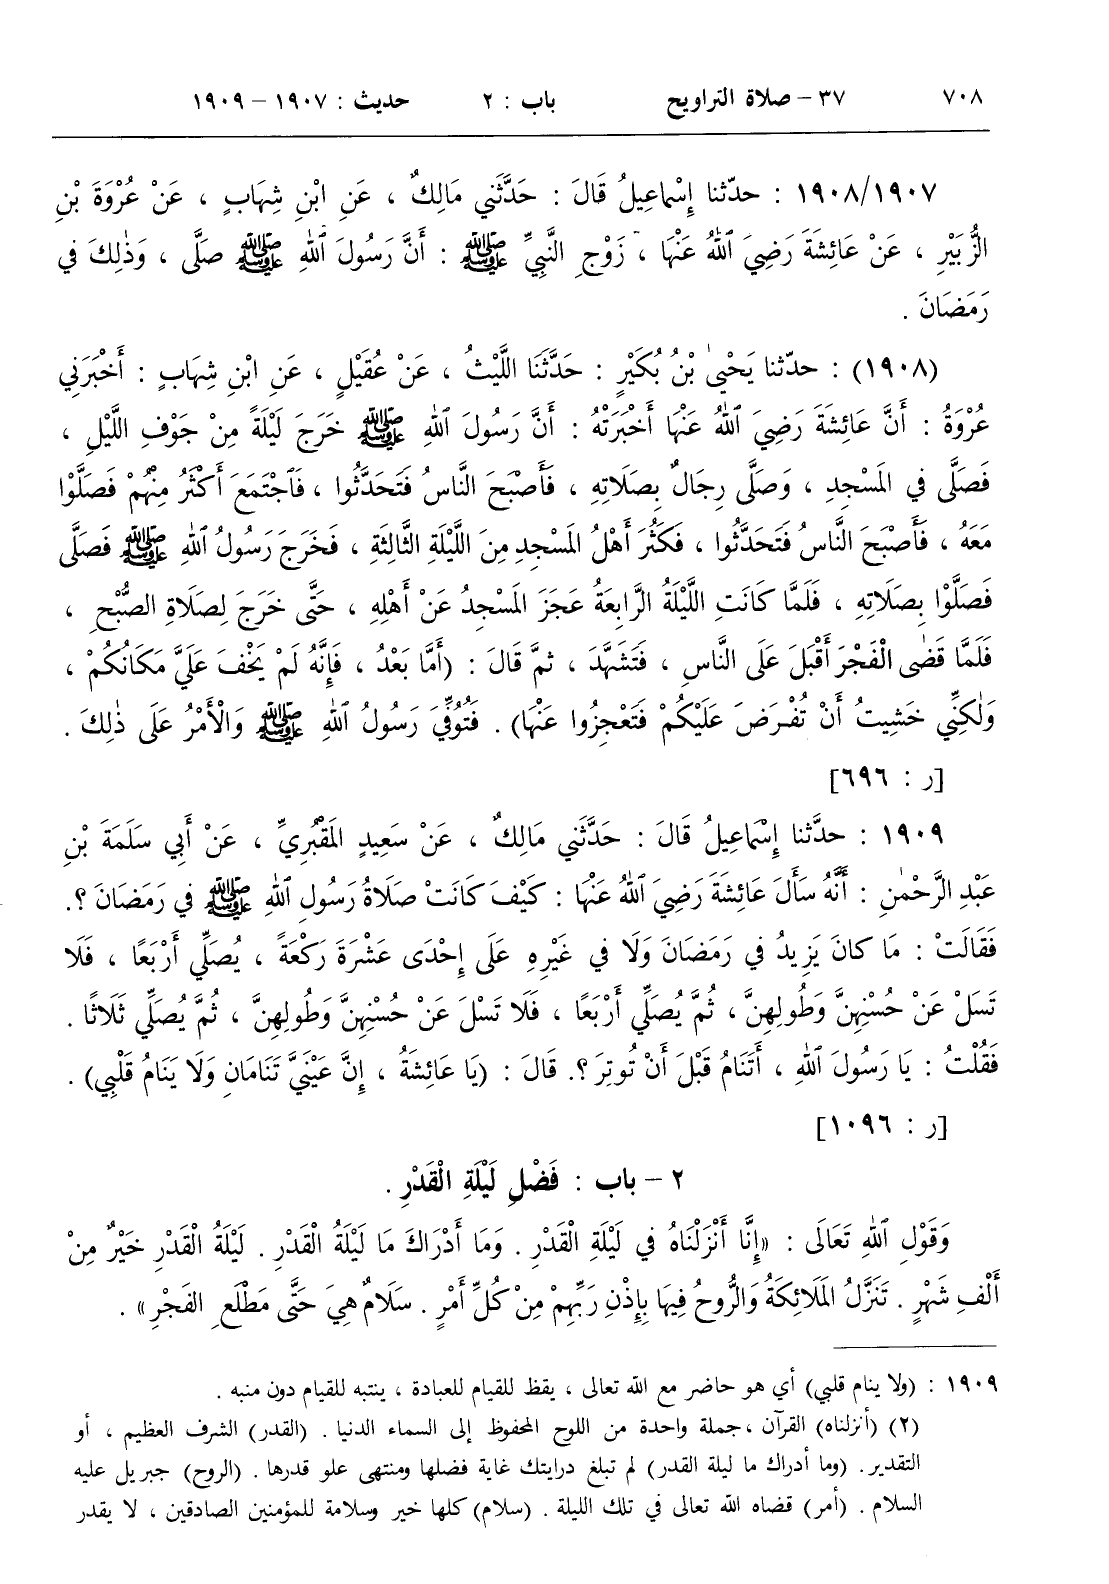 ٧٠٨ ٣٧ – صلاة التراويح باب : ٢ حديث : ١٩٠٧ – ١٩٠٩
١٩٠٨/١٩٠٧ : حدّثنا إِسْماعِيلُ قَالَ : حَدَّثَنِي مَالِكٌ ، عَنِ ابْنِ شِهَابٍ ، عَنْ عُرْوَةَ بْنِ
الزُّبَيْرِ ، عَنْ عَائِشَةَ رَضِيَ ٱللهُ عَنْهَا ، زَوْجِ النَّبِيِّ ﷺ : أَنَّ رَسُولَ ٱللهِ ﷺ صَلَّى ، وَذٰلِكَ في
رَمَضَانَ .
(١٩٠٨) : حدّثنا يَحْيىٰ بْنُ بُكَيْرٍ : حَدَّثَنَا اللَّيْثُ ، عَنْ عُقَيْلٍ ، عَنِ ابْنِ شِهَابٍ : أَخْبَرَنِي
عُرْوَةُ : أَنَّ عَائِشَةَ رَضِيَ ٱللهُ عَنْهَا أَخْبَرَتْهُ : أَنَّ رَسُولَ ٱللهِ ﷺ خَرَجَ لَيْلَةً مِنْ جَوْفِ اللَّيْلِ ،
فَصَلَّى في المَسْجِدِ ، وَصَلَّى رِجَالٌ بِصَلَاتِهِ ، فَأَصْبَحَ النَّاسُ فَتَحَدَّثُوا ، فَٱجْتَمَعَ أَكْثَرُ مِنْهُمْ فَصَلَّوْا
مَعَهُ ، فَأَصْبَحَ النَّاسُ فَتَحَدَّثُوا ، فَكَثُرَ أَهْلُ المَسْجِدِ مِنَ اللَّيْلَةِ الثَّالِثَةِ ، فَخَرَجَ رَسُولُ ٱللهِ ﷺ فَصَلَّى
فَصَلَّوْا بِصَلَاتِهِ ، فَلَمَّا كَانَتِ اللَّيْلَةُ الرَّابِعَةُ عَجَزَ المَسْجِدُ عَنْ أَهْلِهِ ، حَتَّى خَرَجَ لِصَلَاةِ الصُّبْحِ ،
فَلَمَّا قَضٰى الْفَجْرَ أَقْبَلَ عَلَى النَّاسِ ، فَتَشَهَّدَ ، ثمَّ قَالَ : (أَمَّا بَعْدُ ، فَإِنَّهُ لَمْ يَخْفَ عَلَيَّ مَكَانُكُمْ ،
وَلٰكِنِّي خَشِيتُ أَنْ تُفْرَضَ عَلَيْكُمْ فَتَعْجِزُوا عَنْهَا) . فَتُوُفِّيَ رَسُولُ ٱللهِ ﷺ وَالْأَمْرُ عَلَى ذٰلِكَ .
[ر : ٦٩٦]
١٩٠٩ : حدَّثنا إِسْمَاعِيلُ قَالَ : حَدَّثَنِي مَالِكٌ ، عَنْ سَعِيدٍ المَقْبُرِيِّ ، عَنْ أَبِي سَلَمَةَ بْنِ
عَبْدِ الرَّحْمٰنِ : أَنَّهُ سَأَلَ عَائِشَةَ رَضِيَ ٱللهُ عَنْهَا : كَيْفَ كَانَتْ صَلَاةُ رَسُولِ ٱللهِ ﷺ في رَمَضَانَ ؟.
فَقَالَتْ : مَا كانَ يَزِيدُ في رَمَضَانَ وَلَا في غَيْرِهِ عَلَى إِحْدَى عَشْرَةَ رَكْعَةً ، يُصَلِّي أَرْبَعًا ، فَلَا
تَسَلْ عَنْ حُسْنِهِنَّ وَطُولِهِنَّ ، ثُمَّ يُصَلِّي أَرْبَعًا ، فَلَا تَسَلْ عَنْ حُسْنِهِنَّ وَطُولِهِنَّ ، ثُمَّ يُصَلِّي ثَلَاثًا .
فَقُلْتُ : يَا رَسُولَ ٱللهِ ، أَتَنَامُ قَبْلَ أَنْ تُوتِرَ ؟. قَالَ : (يَا عَائِشَةُ ، إِنَّ عَيْنَيَّ تَنَامَانِ وَلَا يَنَامُ قَلْبِي) .
[ر : ١٠٩٦]
٢ – باب : فَضْلِ لَيْلَةِ الْقَدْرِ .
وَقَوْلِ ٱللهِ تَعَالَى : «إِنَّا أَنْزَلْنَاهُ في لَيْلَةِ الْقَدْرِ . وَمَا أَدْرَاكَ مَا لَيْلَةُ الْقَدْرِ . لَيْلَةُ الْقَدْرِ خَيْرٌ مِنْ
أَلْفِ شَهْرٍ . تَنَزَّلُ المَلَائِكَةُ وَالرُّوحُ فِيهَا بِإِذْنِ رَبِّهِمْ مِنْ كُلِّ أَمْرٍ . سَلَامٌ هِيَ حَتَّى مَطْلَعِ الفَجْرِ» .
١٩٠٩ : (ولا ينام قلبي) أي هو حاضر مع الله تعالى ، يقظ للقيام للعبادة ، ينتبه للقيام دون منبه .
(٢) (أنزلناه) القرآن ، جملة واحدة من اللوح المحفوظ إلى السماء الدنيا . (القدر) الشرف العظيم ، أو
التقدير . (وما أدراك ما ليلة القدر) لم تبلغ درايتك غاية فضلها ومنتهى علو قدرها . (الروح) جبريل عليه
السلام . (أمر) قضاه الله تعالى في تلك الليلة . (سلام) كلها خير وسلامة للمؤمنين الصادقين ، لا يقدر